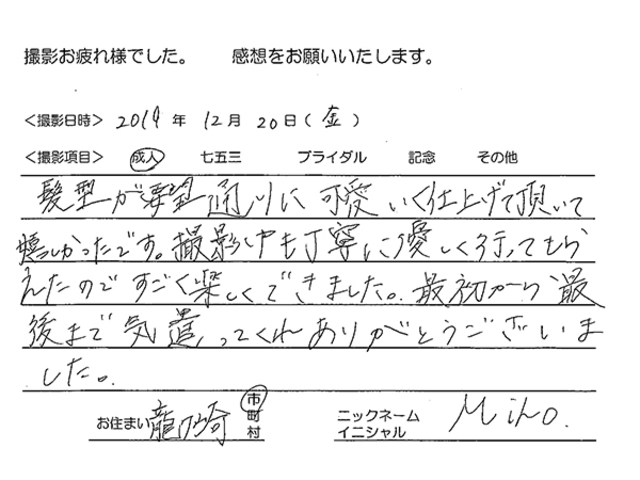 撮影お疲れ様でした。 感想をお願いいたします。
<撮影日時> 2019 年 12月 20日(金)
<撮影項目> 成人 七五三 ブライダル 記念 その他
髪型が要望通りに可愛いく仕上げて頂いて
嬉しかったです。撮影中も丁寧に優しく行ってもら
えたのですごく楽しくできました。最初から最
後まで気遣ってくれありがとうございま
した。
お住まい 龍ヶ崎 市町村 ニックネーム イニシャル Miho.